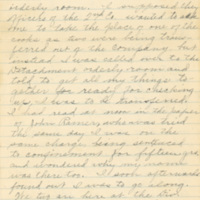 orderly room. I supposed they
Officers of the 2nd Co. wanted to ask
me to take the place of one of the
cooks as two was being trans-
ferred out of the Company. but
instead I was called over to the
Detachment orderly room and
told to get all my things to
gether and ready for checking
up. I was to be transferred.
I had read at noon in the paper
of John Turner, who was hired
the same day I was on the
same charge being sentenced
to confinement for fifteen yrs
and wondered why my name
was there too. I soon afterwards
found out I was to go along.
We two are here at the